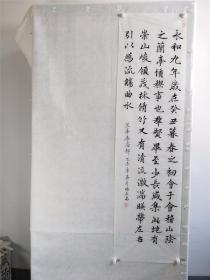 永和九年歲在癸丑暮春之初會于會稽山陰
之蘭亭脩禊事也羣賢畢至少長咸集此地有
崇山峻領茂林脩竹又有清流激湍暎帶左右
引以為流觴曲水